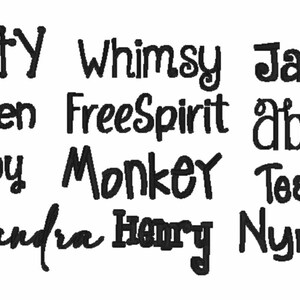 ty Whimsy Ja
en FreeSpirit ab
Monkey Tes
andra Henry Ny